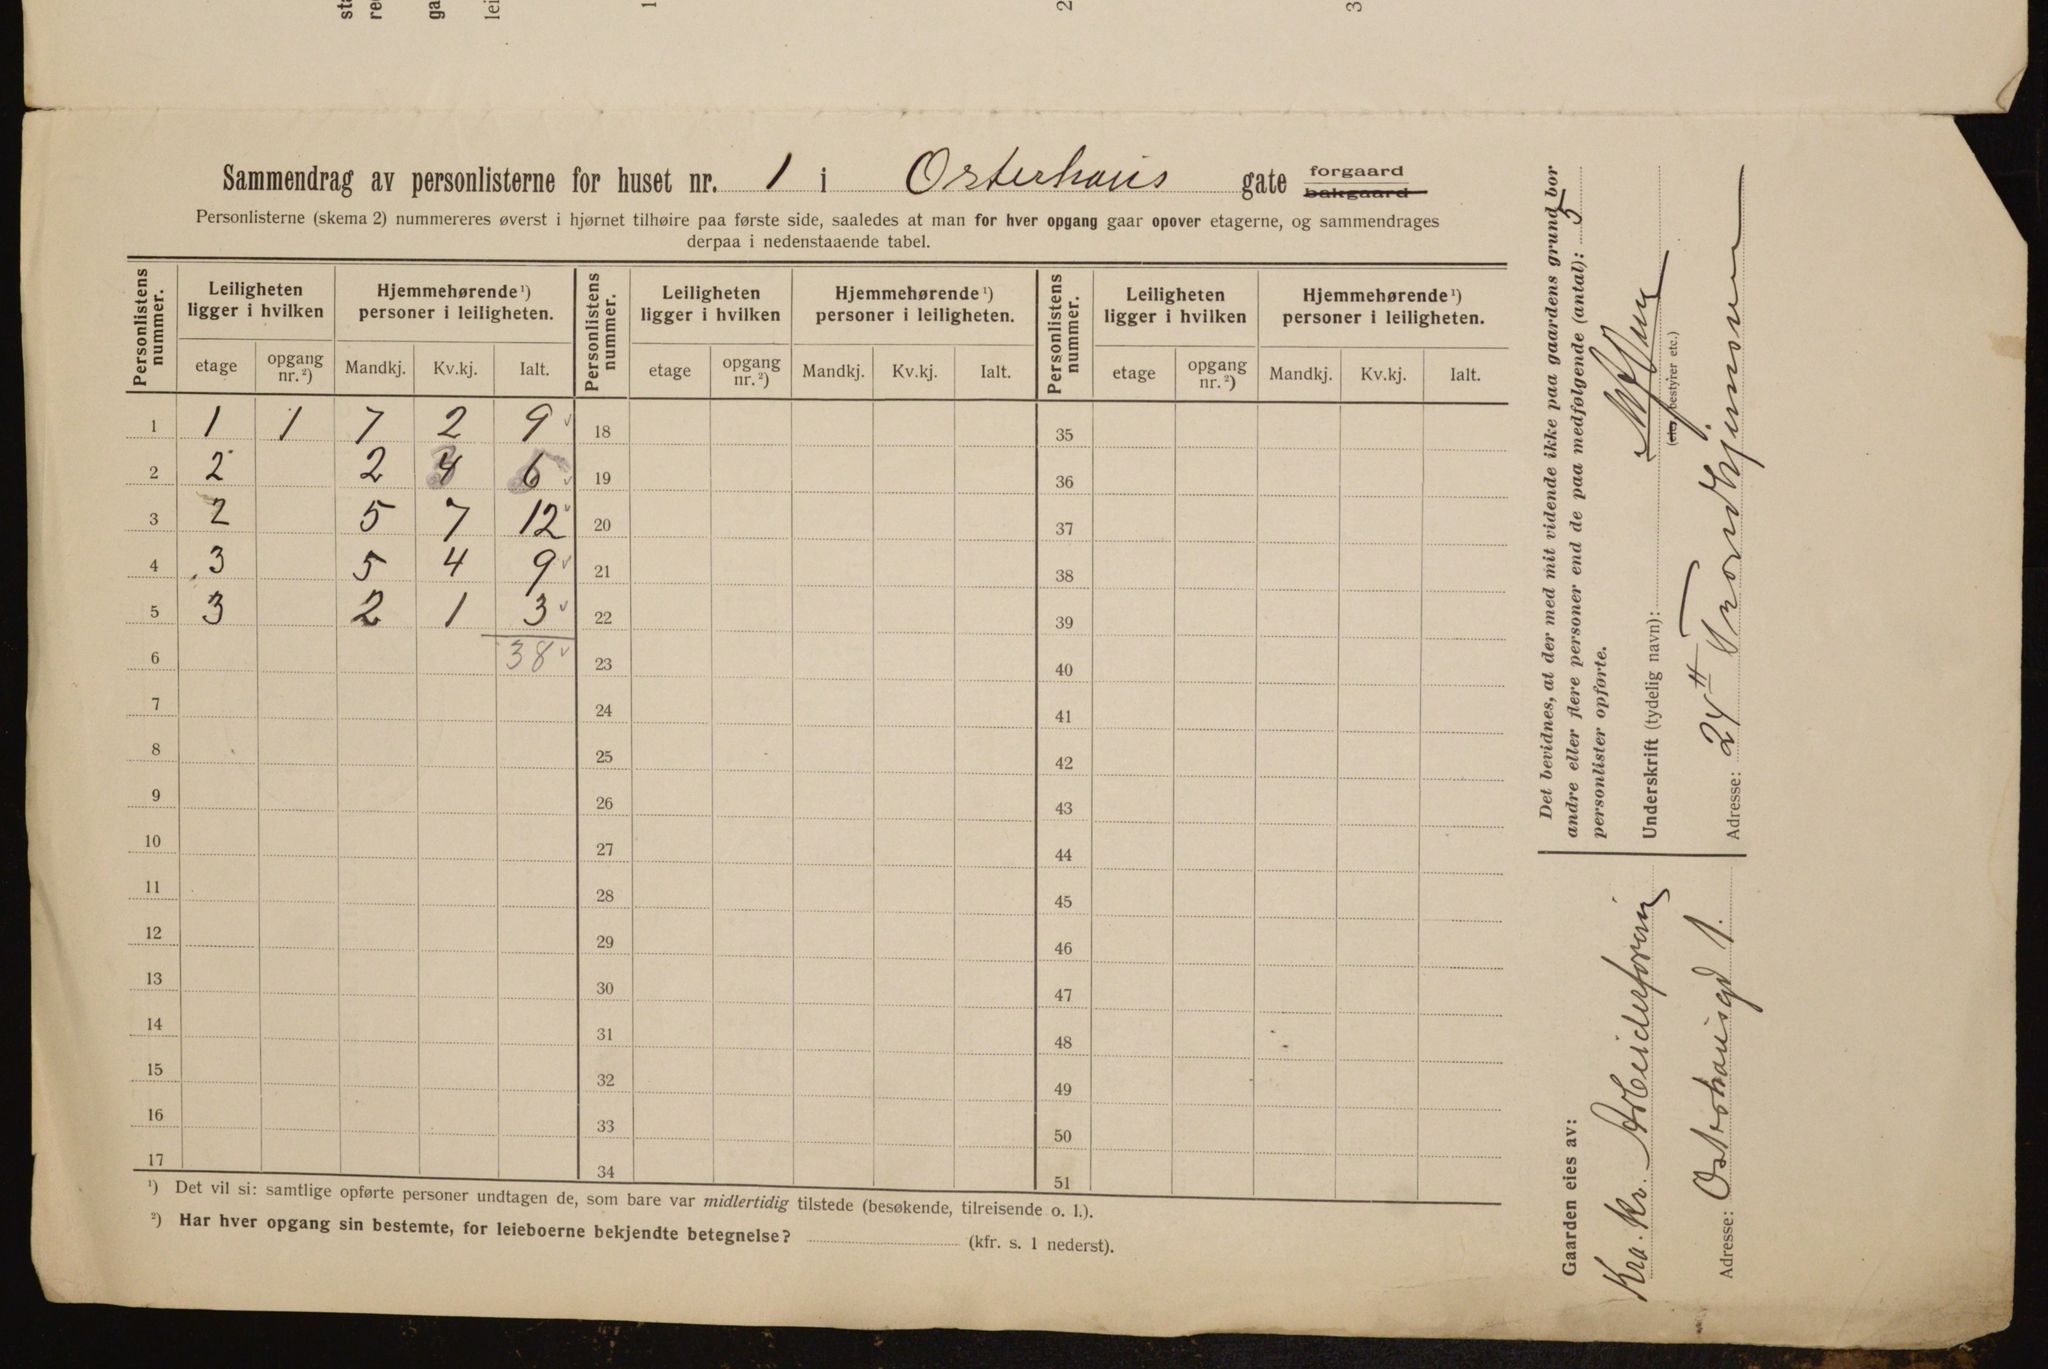 Sammendrag av personlisterne for huset nr. 1 i Osterhaus gate forgaard bakgaard
Personlisterne (skema 2) nummereres øverst i hjørnet tilhøire paa første side, saaledes at man for hver opgang gaar opover etagerne, og sammendrages
derpaa i nedenstaaende tabel.
Personlistens nummer. Leiligheten ligger i hvilken Hjemmehørende ¹) personer i leiligheten. Personlistens nummer. Leiligheten ligger i hvilken Hjemmehørende ¹) personer i leiligheten. Personlistens nummer. Leiligheten ligger i hvilken Hjemmehørende ¹) personer i leiligheten.
etage opgang nr. ²) Mandkj. Kv.kj. Ialt. etage opgang nr. ²) Mandkj. Kv.kj. Ialt. etage opgang nr. ²) Mandkj. Kv.kj. Ialt.
1 1 1 7 2 9 18 35
2 2 2 4 6 19 36
3 2 5 7 12 20 37
4 3 5 4 9 21 38
5 3 2 1 3 22 39
6 38 23 40
7 24 41
8 25 42
9 26 43
10 27 44
11 28 45
12 29 46
13 30 47
14 31 48
15 32 49
16 33 50
17 34 51
¹) Det vil si: samtlige opførte personer undtagen de, som bare var midlertidig tilstede (besøkende, tilreisende o. l.).
²) Har hver opgang sin bestemte, for leieboerne bekjendte betegnelse? (kfr. s. 1 nederst).
Det bevidnes, at der med mit vidende ikke paa gaardens grund bor
andre eller flere personer end de paa medfølgende (antal): 5
personlister opførte.
Underskrift (tydelig navn):
(eier, bestyrer etc.)
Adresse: 24 II Trondhjemsvn
Gaarden eies av:
Kra. Kr. Arbeiderforening
Adresse: Osterhausgd 1.